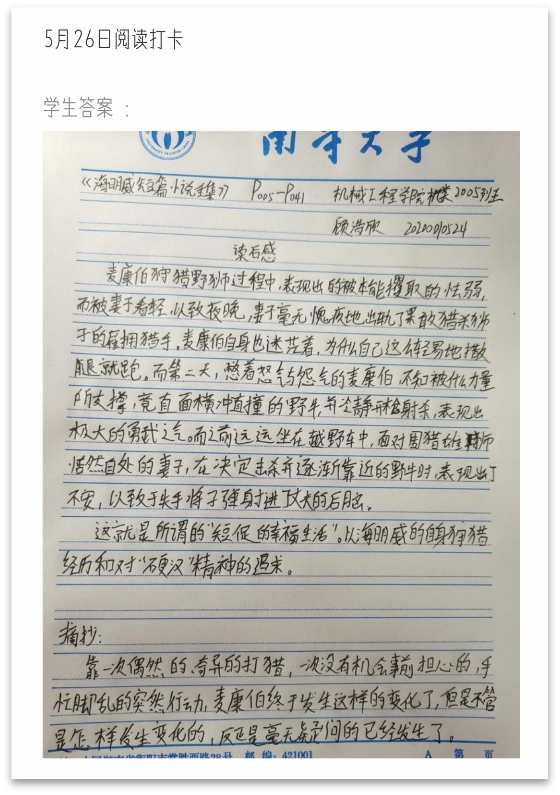 5月26日阅读打卡
学生答案 ：
南华大学
《海明威短篇小说全集》 P005-P041 机械工程学院机类2005班
顾浩欣 20200910524
读后感
麦康伯狩猎野狮过程中，表现出的被本能攫取的怯弱，
而被妻子看轻，以致夜晚，妻子毫无愧疚地出轨了果敢猎杀狮
子的雇佣猎手。麦康伯自身也迷茫着，为什么自己这么轻易地撒
腿就跑。而第二天，憋着怒气与怨气的麦康伯不知被什么力量
所支撑，竟直面横冲直撞的野牛，并冷静开枪射杀，表现出
极大的勇武之气。而之前远远坐在越野车中，面对围猎雄狮
恬然自处的妻子，在决定击杀并逐渐靠近的野牛时，表现出了
不安，以致于失手将子弹射进了丈夫的后脑。
这就是所谓的“短促的幸福生活”。以海明威的自身狩猎
经历和对“硬汉”精神的追求。
摘抄：
靠一次偶然的奇异的打猎，一次没有机会事前担心的，手
忙脚乱的突然行动，麦康伯终于发生这样的变化了，但是不管
是怎样发生变化的，反正是毫无疑问的已经发生了。
常胜西路28号 邮编：421001 A 第 页